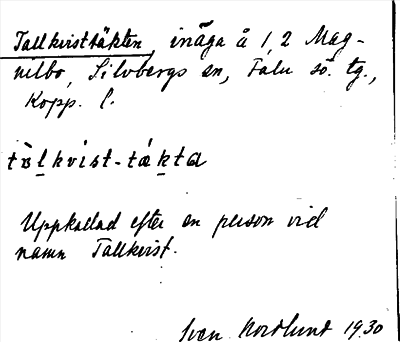 Tallkvisttäkten, inäga å 1, 2 Mag-
nilbo, Silvbergs sn, Falu sö. tg.,
Kopp. l.
tàl̠kvist-ták̠ta
Uppkallad efter en person vid
namn Tallkvist.
Sven Nordlund 1930